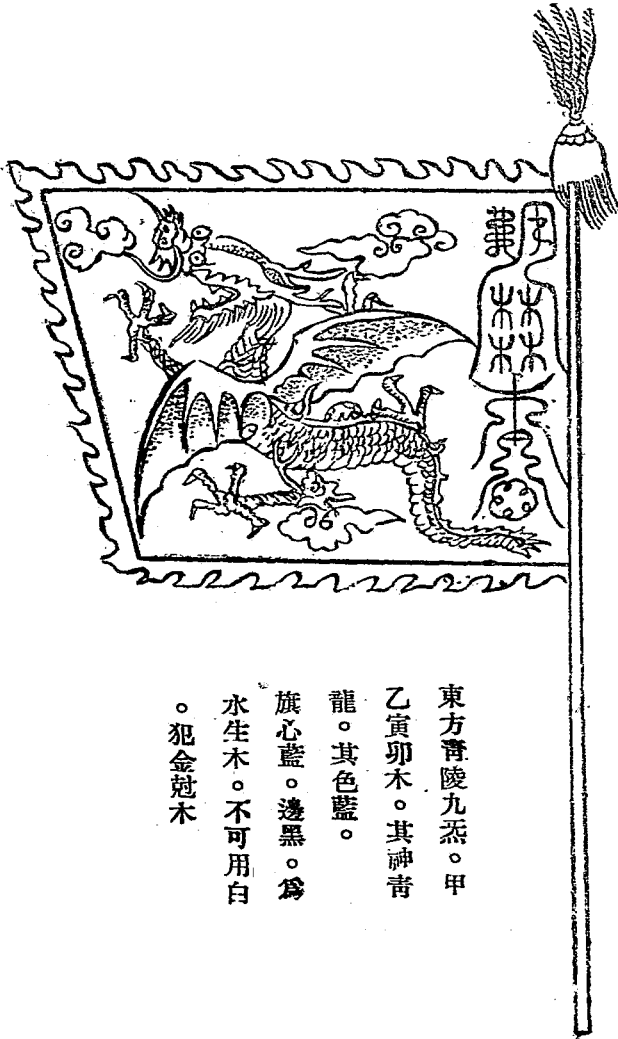 東方靑陵九炁。甲
乙寅卯木。其神靑
龍。其色藍。
旗心藍。邊黑。爲
水生木。不可用白
。犯金尅木